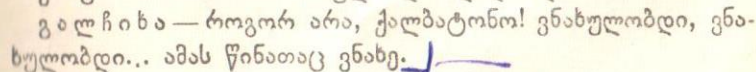 გალჩიხა — როგორ არა, ქალბატონო! ვნახულობდი, ვნა-
ხულობდი... ამას წინათაც ვნახე.